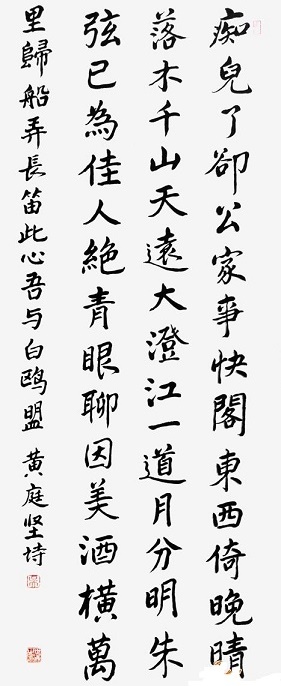 痴兒了卻公家事快閣東西倚晚晴
落木千山天遠大澄江一道月分明朱
弦已為佳人絕青眼聊因美酒橫萬
里歸船弄長笛此心吾与白鸥盟 黄庭坚诗